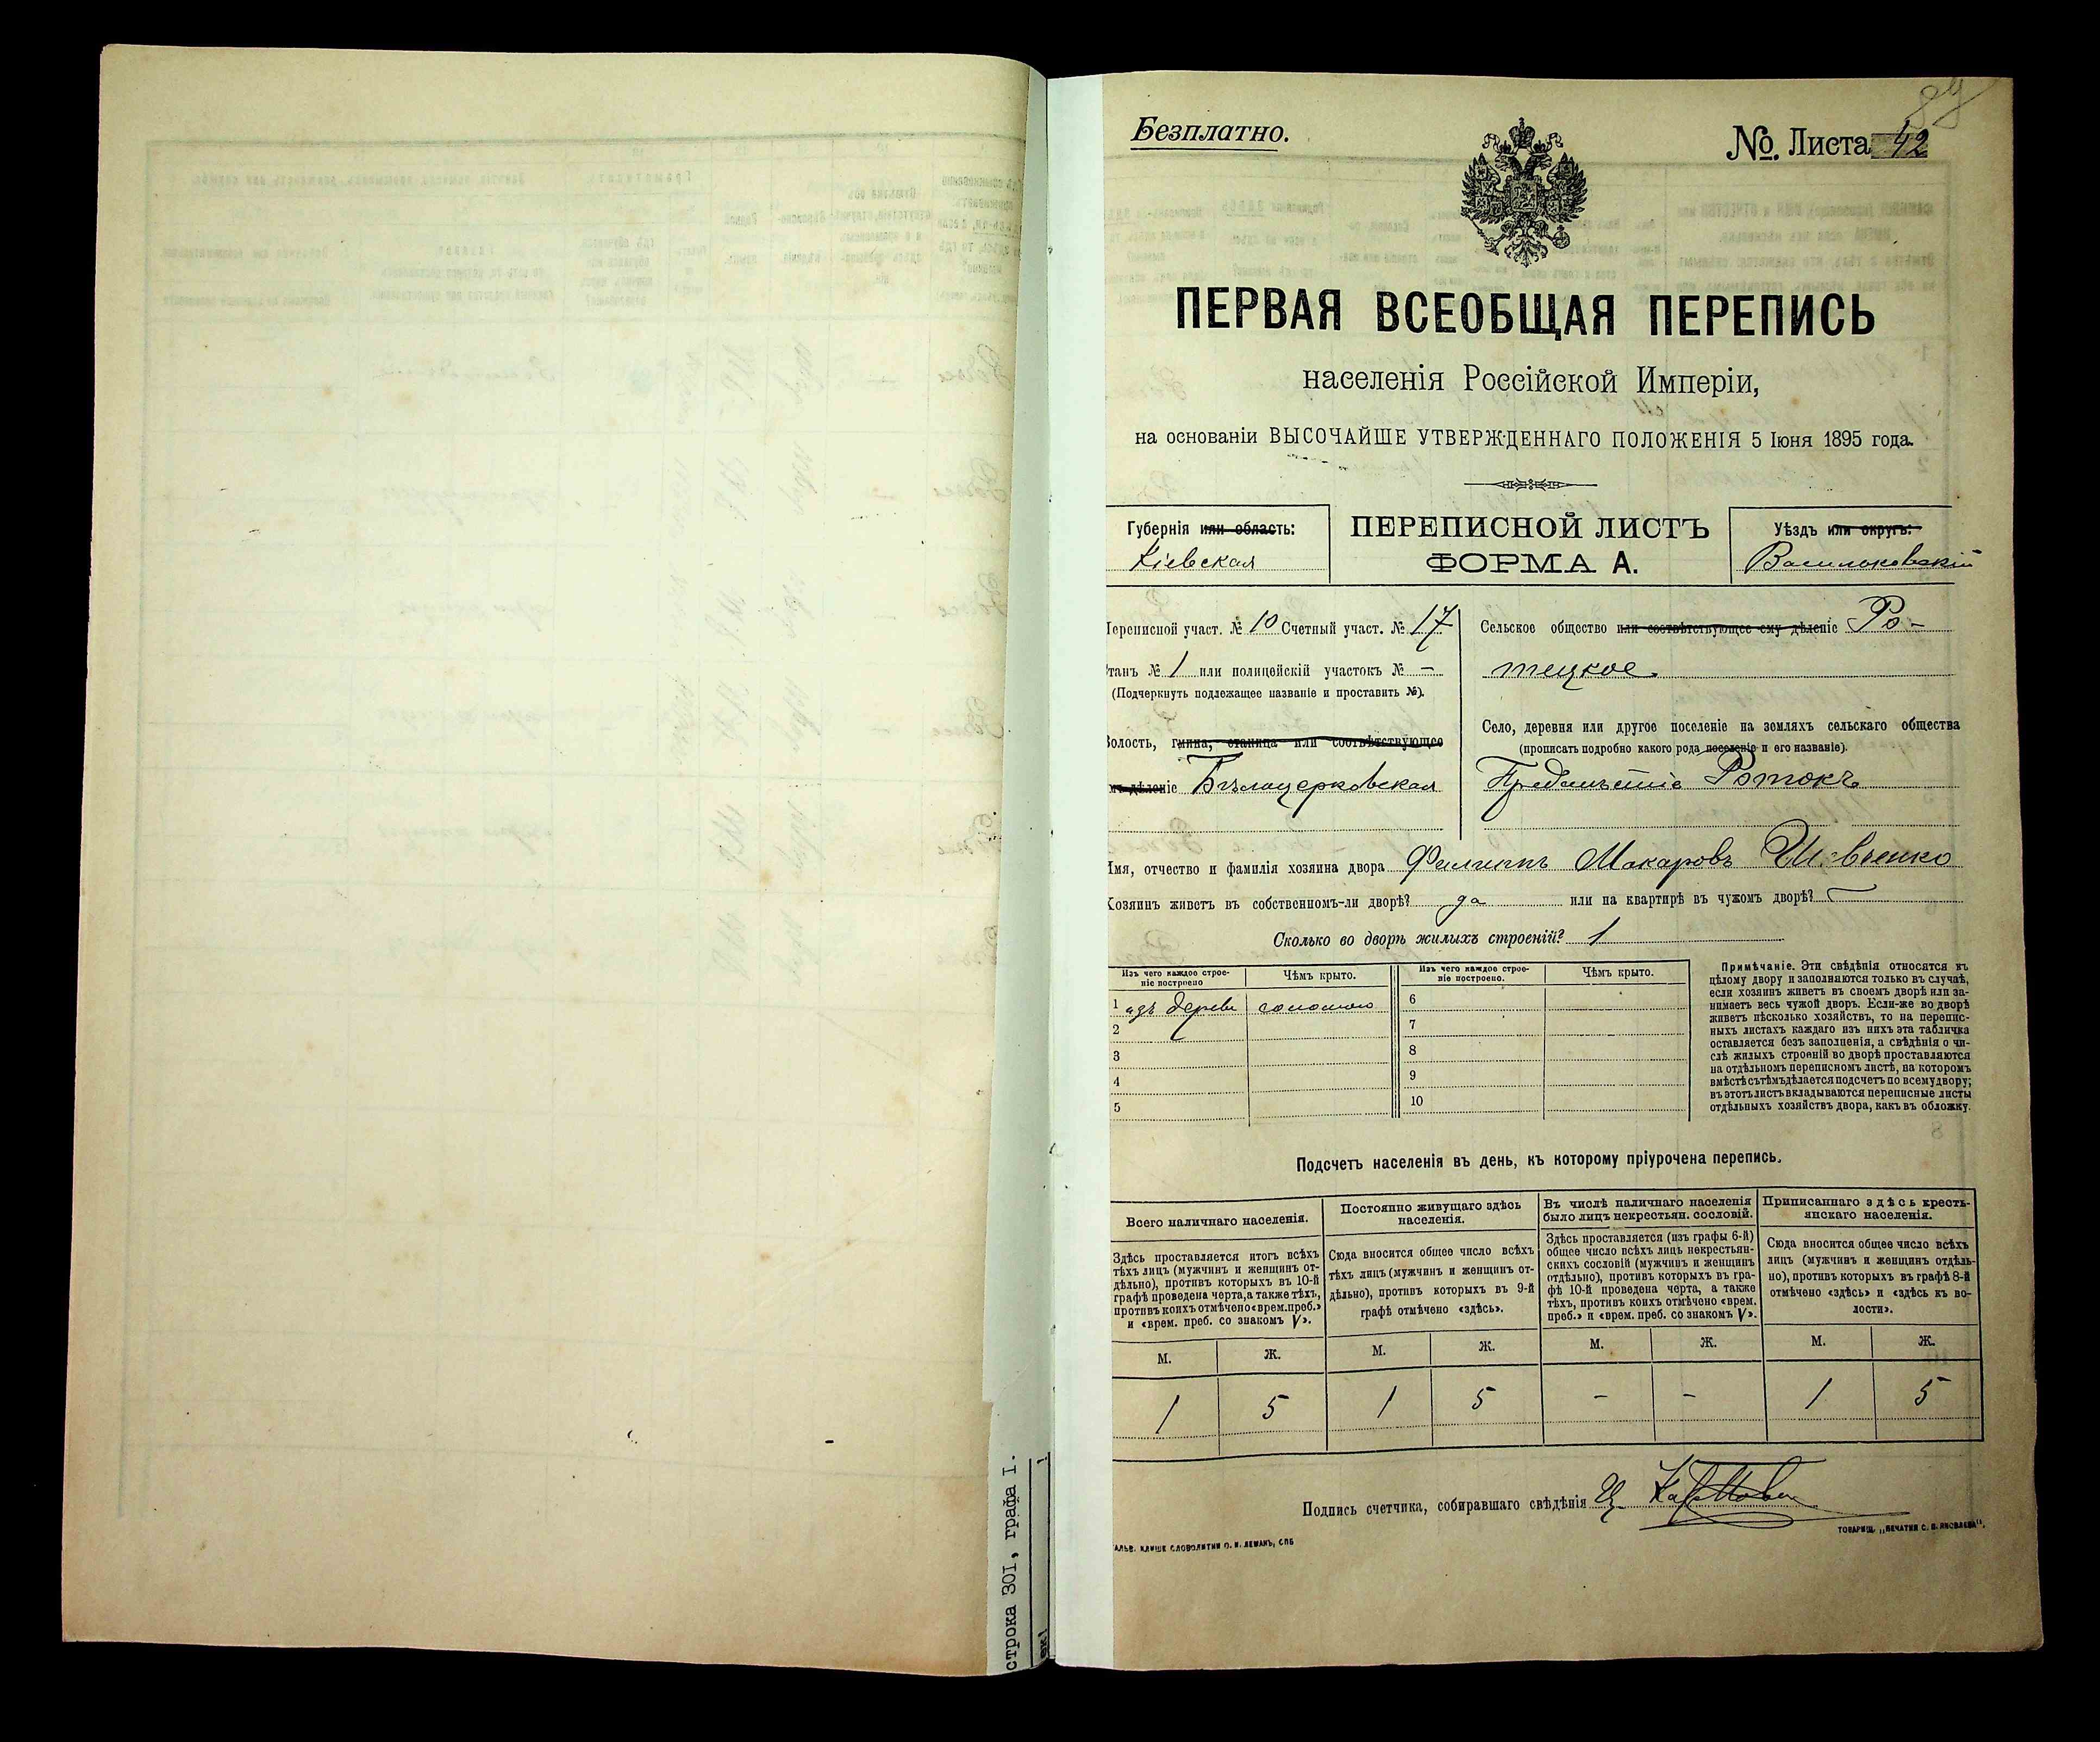 89
Безплатно.
№. Листа 42
ПЕРВАЯ ВСЕОБЩАЯ ПЕРЕПИСЬ
населенія Россійской Имперіи,
на основаніи ВЫСОЧАЙШЕ УТВЕРЖДЕННАГО ПОЛОЖЕНІЯ 5 Іюня 1895 года.
Губернія или область:
Кіевская
ПЕРЕПИСНОЙ ЛИСТЪ
ФОРМА А.
Уѣздъ или округъ:
Васильковскій
Переписной участ. № 10 Счетный участ. № 17
Станъ № 1 или полицейскій участокъ № —
(Подчеркнуть подлежащее названіе и проставить №).
Волость, гмина, станица или соотвѣтствующее
имъ дѣленіе Бѣлоцерковская
Сельское общество или соотвѣтствующее ему дѣленіе Ро-
тецкое
Село, деревня или другое поселеніе на земляхъ сельскаго общества
(прописать подробно какого рода поселеніе и его названіе).
Предмѣстіе Ротокъ
Имя, отчество и фамилія хозяина двора Филиппъ Макаровъ Шевченко
Хозяинъ живетъ въ собственномъ-ли дворѣ? да или на квартирѣ въ чужомъ дворѣ? —
Сколько во дворѣ жилыхъ строеній? 1
Изъ чего каждое строе-
ніе построено
Чѣмъ крыто.
Изъ чего каждое строе-
ніе построено.
Чѣмъ крыто.
1 изъ дерева соломою
2
3
4
5
6
7
8
9
10
Примѣчаніе. Эти свѣдѣнія относятся къ
цѣлому двору и заполняются только въ случаѣ,
если хозяинъ живетъ въ своемъ дворѣ или за-
нимаетъ весь чужой дворъ. Если-же во дворѣ
живетъ нѣсколько хозяйствъ, то на перепис-
ныхъ листахъ каждаго изъ нихъ эта табличка
оставляется безъ заполненія, а свѣдѣнія о чи-
слѣ жилыхъ строеній во дворѣ проставляются
на отдѣльномъ переписномъ листѣ, на которомъ
вмѣстѣ съ тѣмъ дѣлается подсчетъ по всему двору;
въ этотъ листъ вкладываются переписные листы
отдѣльныхъ хозяйствъ двора, какъ въ обложку.
Подсчетъ населенія въ день, къ которому пріурочена перепись.
Всего наличнаго населенія.
Здѣсь проставляется итогъ всѣхъ
тѣхъ лицъ (мужчинъ и женщинъ от-
дѣльно), противъ которыхъ въ 10-й
графѣ проведена черта, а также тѣхъ,
противъ коихъ отмѣчено «врем. преб.»
и «врем. преб. со знакомъ V».
Постоянно живущаго здѣсь
населенія.
Сюда вносится общее число всѣхъ
тѣхъ лицъ (мужчинъ и женщинъ от-
дѣльно), противъ которыхъ въ 9-й
графѣ отмѣчено «здѣсь».
Въ числѣ наличнаго населенія
было лицъ некрестьян. сословій.
Здѣсь проставляется (изъ графы 6-й)
общее число всѣхъ лицъ некрестьян-
скихъ сословій (мужчинъ и женщинъ
отдѣльно), противъ которыхъ въ гра-
фѣ 10-й проведена черта, а также
тѣхъ, противъ коихъ отмѣчено «врем.
преб.» и «врем. преб. со знакомъ V».
Приписаннаго здѣсь кресть-
янскаго населенія.
Сюда вносится общее число всѣхъ
лицъ (мужчинъ и женщинъ отдѣль-
но), противъ которыхъ въ графѣ 8-й
отмѣчено «здѣсь» и «здѣсь къ во-
лости».
М. Ж. М. Ж. М. Ж. М. Ж.
1 5 1 5 - - 1 5
Подпись счетчика, собиравшаго свѣдѣнія
ГАЛЬВ. КЛИШЕ СЛОВОЛИТНИ О. И. ЛЕМАНЪ, СПБ
ТОВАРИЩ. „ПЕЧАТНЯ С. П. ЯКОВЛЕВА".
строка 301, графа 1.